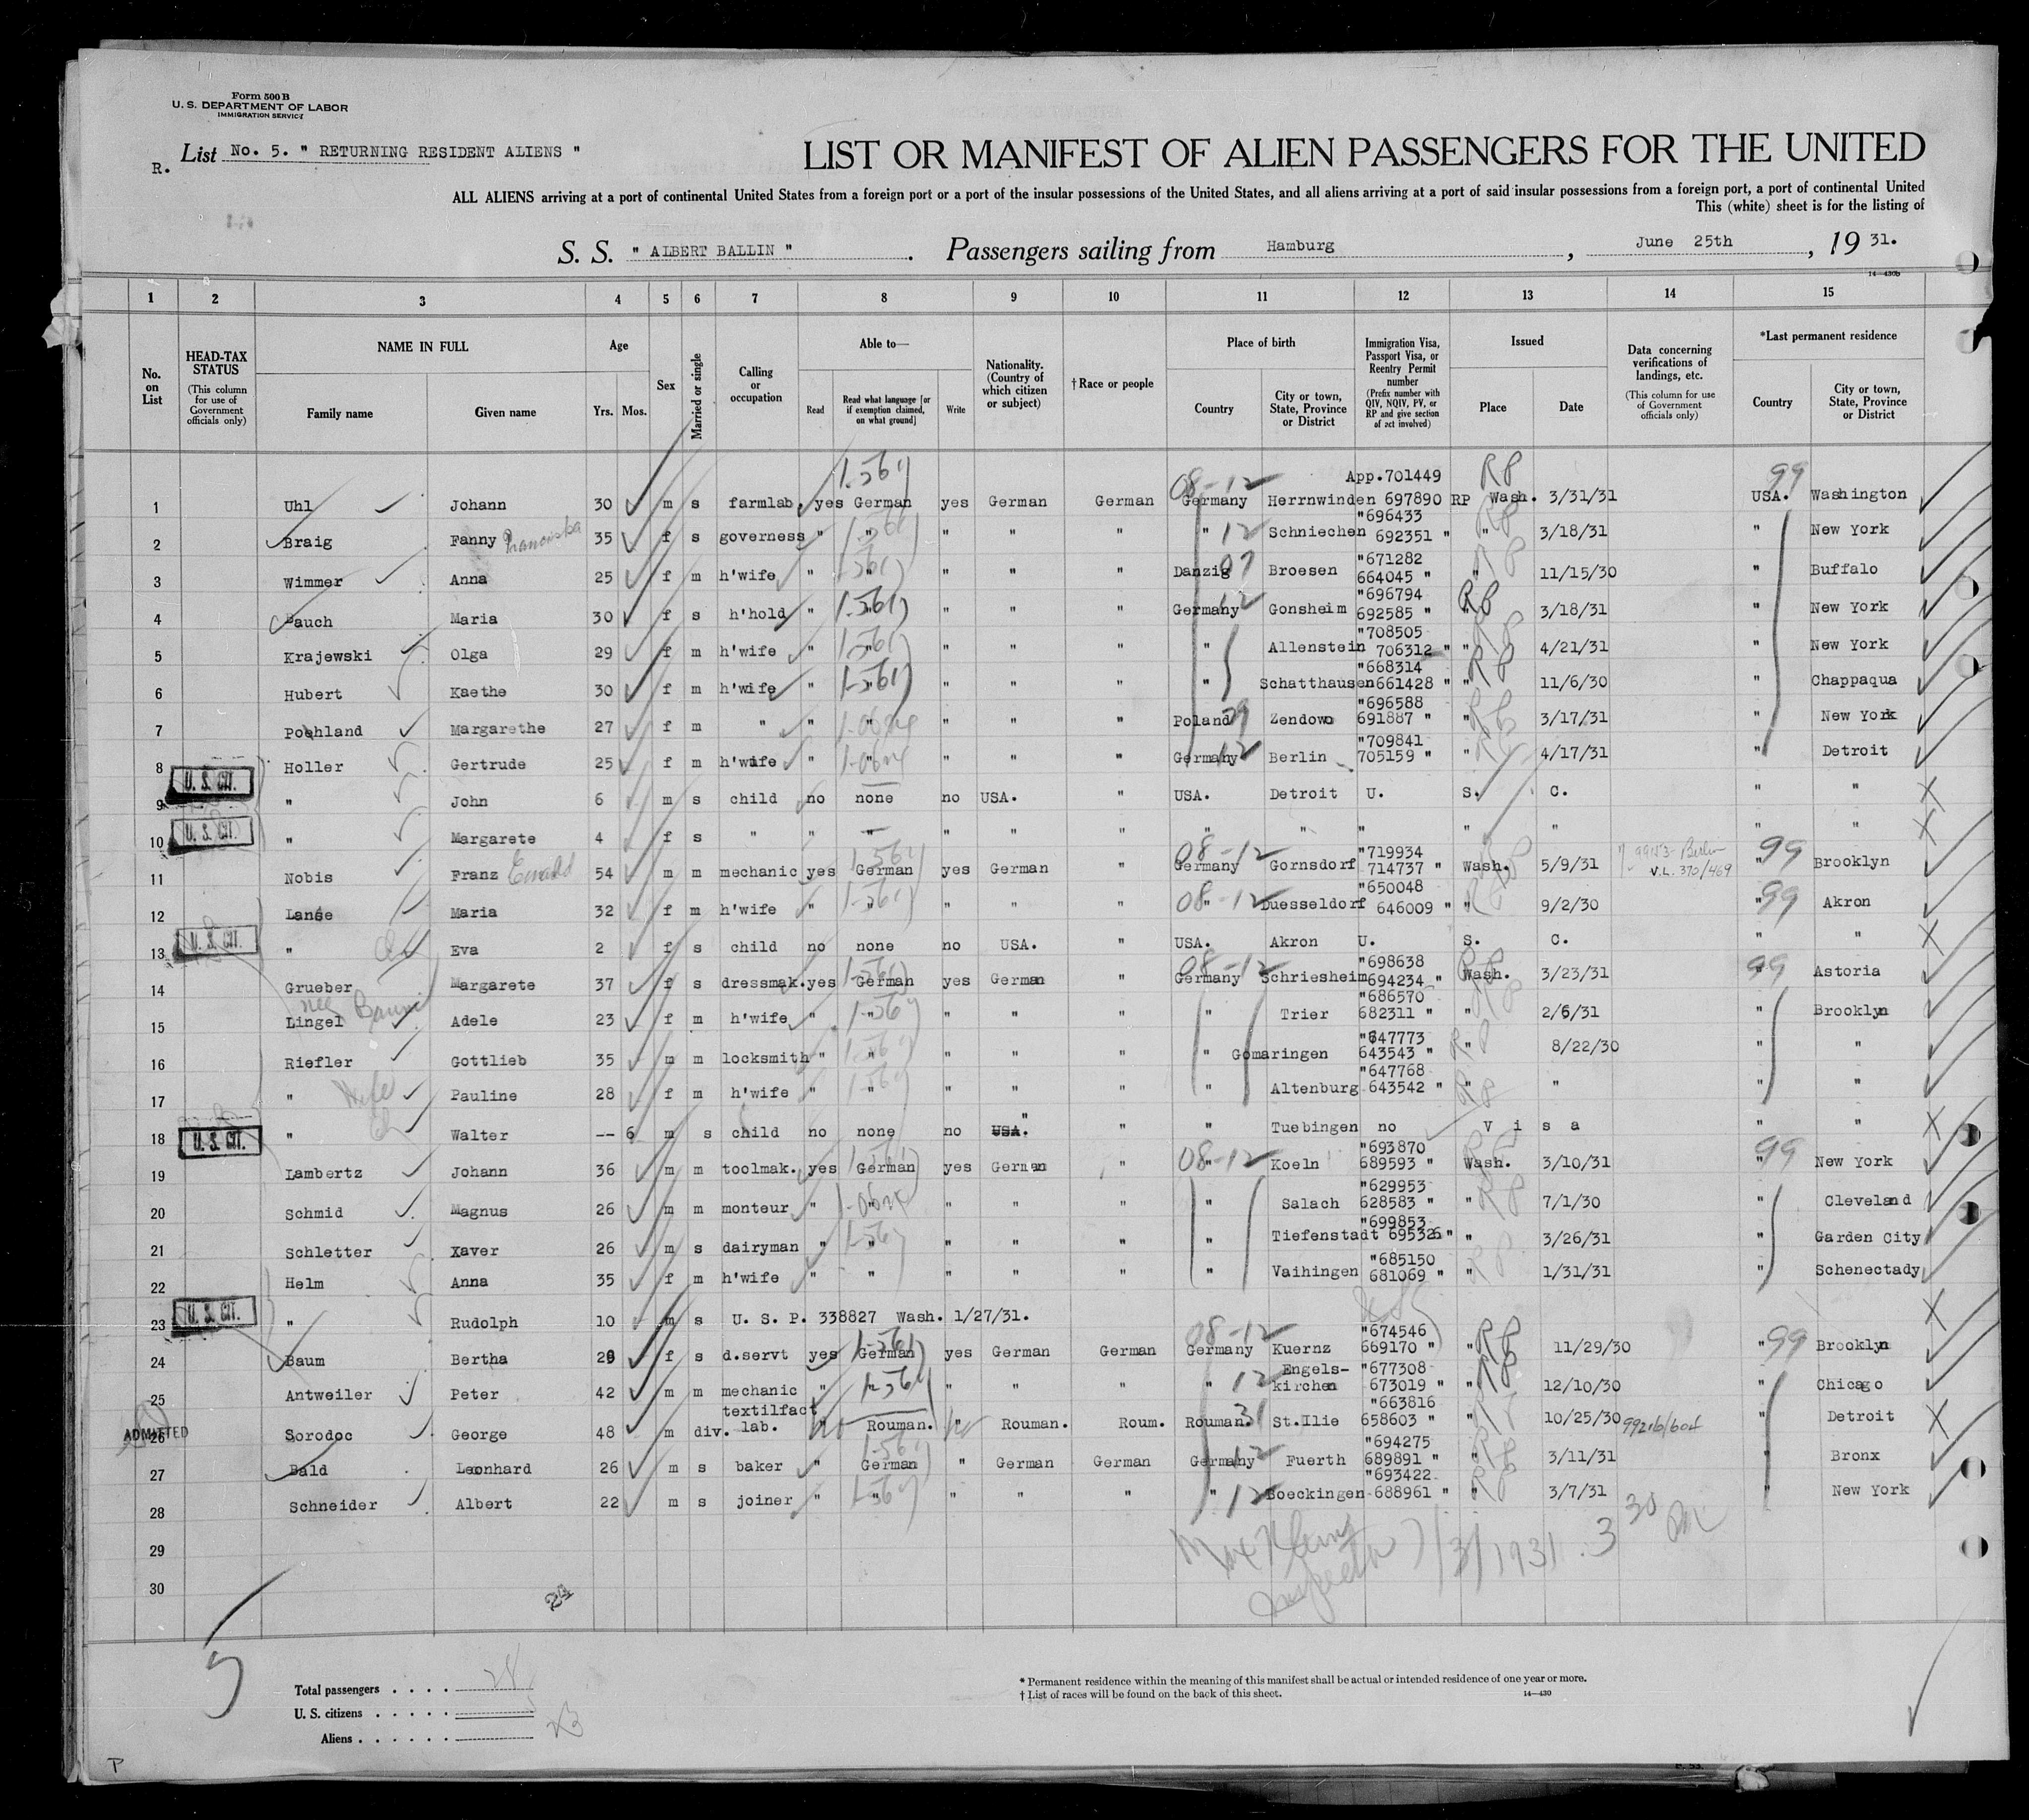 Form 500 B
U. S. DEPARTMENT OF LABOR
IMMIGRATION SERVICE
R. List No. 5. " RETURNING RESIDENT ALIENS "
LIST OR MANIFEST OF ALIEN PASSENGERS FOR THE UNITED
ALL ALIENS arriving at a port of continental United States from a foreign port or a port of the insular possessions of the United States, and all aliens arriving at a port of said insular possessions from a foreign port, a port of continental United
This (white) sheet is for the listing of
S. S. " ALBERT BALLIN ". Passengers sailing from Hamburg, June 25th, 19 31.
14—430b
1 2 3 4 5 6 7 8 9 10 11 12 13 14 15
No. on List
HEAD-TAX STATUS (This column for use of Government officials only)
NAME IN FULL Family name Given name
Age Yrs. Mos.
Sex
Married or single
Calling or occupation
Able to— Read Read what language [or if exemption claimed, on what ground] Write
Nationality. (Country of which citizen or subject)
†Race or people
Place of birth Country City or town, State, Province or District
Immigration Visa, Passport Visa, or Reentry Permit number (Prefix number with QIV, NQIV, PV, or RP and give section of act involved)
Issued Place Date
Data concerning verifications of landings, etc. (This column for use of Government officials only)
*Last permanent residence Country City or town, State, Province or District
1 Uhl Johann 30 m s farmlab. yes German yes German German 08-12 Germany Herrnwinden App.701449 697890 RP Wash. 3/31/31 99 USA. Washington
2 Braig Fanny Franciska 35 f s governess " " " " " " 12 Schniechen "696433 692351 " " RP 3/18/31 " New York
3 Wimmer Anna 25 f m h'wife " " " " " Danzig 07 Broesen "671282 664045 " " RP 11/15/30 " Buffalo
4 Bauch Maria 30 f s h'hold " " " " " Germany 12 Gonsheim "696794 692585 " RP 3/18/31 " New York
5 Krajewski Olga 29 f m h'wife " " " " " " Allenstein "708505 706312 " " RP 4/21/31 " New York
6 Hubert Kaethe 30 f m h'wife " " " " " " Schatthausen "668314 661428 " " RP 11/6/30 " Chappaqua
7 Poehland Margarethe 27 f m " " " " " " Poland 29 Zendowo "696588 691887 " " RP 3/17/31 " New York
8 Holler Gertrude 25 f m h'wife " " " " " Germany 12 Berlin "709841 705159 " " RP 4/17/31 " Detroit
U. S. CIT.
9 " John 6 m s child no none no USA. " USA. Detroit U. S. C. " "
U. S. CIT.
10 " Margarete 4 f s " " " " " " " " " " " " "
11 Nobis Franz Ewald 54 m m mechanic yes German yes German " 08-12 Germany Gornsdorf "719934 714737 " Wash. RP 5/9/31 V.L. 370/469 99 " Brooklyn
12 Lanse Maria 32 f m h'wife " " " " " 08-12 " Duesseldorf "650048 646009 " " RP 9/2/30 99 " Akron
U. S. CIT.
13 " Eva 2 f s child no none no USA. " USA. Akron U. S. C. " "
14 Grueber Margarete 37 f s dressmak. yes German yes German " 08-12 Germany Schriesheim "698638 694234 " Wash. RP 3/23/31 99 Astoria
15 Lingel nee Adele 23 f m h'wife " " " " " " Trier "686570 682311 " " RP 2/6/31 " Brooklyn
16 Riefler Gottlieb 35 m m locksmith " " " " " " Gomaringen "647773 643543 " " RP 8/22/30 " "
17 " Wife Pauline 28 f m h'wife " " " " " " Altenburg "647768 643542 " " RP " " "
U. S. CIT.
18 " Ch Walter -- 6 m s child no none no USA. " " " Tuebingen no Visa " "
19 Lambertz Johann 36 m m toolmak. yes German yes German " 08-12 " Koeln "693870 689593 " Wash. RP 3/10/31 99 " New York
20 Schmid Magnus 26 m m monteur " " " " " " Salach "629953 628583 " " RP 7/1/30 " Cleveland
21 Schletter Xaver 26 m s dairyman " " " " " " Tiefenstadt "699853 695326 " " 3/26/31 " Garden City
22 Helm Anna 35 f m h'wife " " " " " " Vaihingen "685150 681069 " " RP 1/31/31 " Schenectady
U. S. CIT.
23 " Rudolph 10 m s U. S. P. 338827 Wash. 1/27/31.
24 Baum Bertha 29 f s d.servt yes German yes German German 08-12 Germany Kuernz "674546 669170 " " RP 11/29/30 99 " Brooklyn
25 Antweiler Peter 42 m m mechanic " " " " " " 12 Engels-kirchen "677308 673019 " " RP 12/10/30 " Chicago
ADMITTED
26 Sorodoc George 48 m div. textilfact lab. " no Rouman. " no Rouman. Roum. Rouman. 31 St.Ilie "663816 658603 " " 10/25/30 " Detroit
27 Bald Leonhard 26 m s baker " German " German German Germany 12 Fuerth "694275 689891 " " RP 3/11/31 " Bronx
28 Schneider Albert 22 m s joiner " " " " " " 12 Boeckingen "693422 688961 " " RP 3/7/31 " New York
29
30
24
Max Klein Inspector 7/3/1931 . 3 30 PM
5
Total passengers . . . . 28
U. S. citizens . . . . . 5
Aliens . . . . . . 23
* Permanent residence within the meaning of this manifest shall be actual or intended residence of one year or more.
† List of races will be found on the back of this sheet. 14—430
P